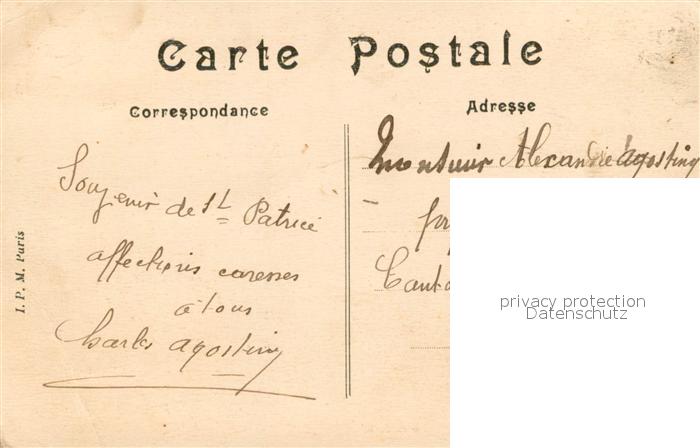 Carte Postale
Correspondance
Adresse
Souvenir de St Patrice
affections caresses
à tous
Charles Agostiny
Monsieur Alexandre Agostiny
Cant
I. P. M. Paris
privacy protection
Datenschutz